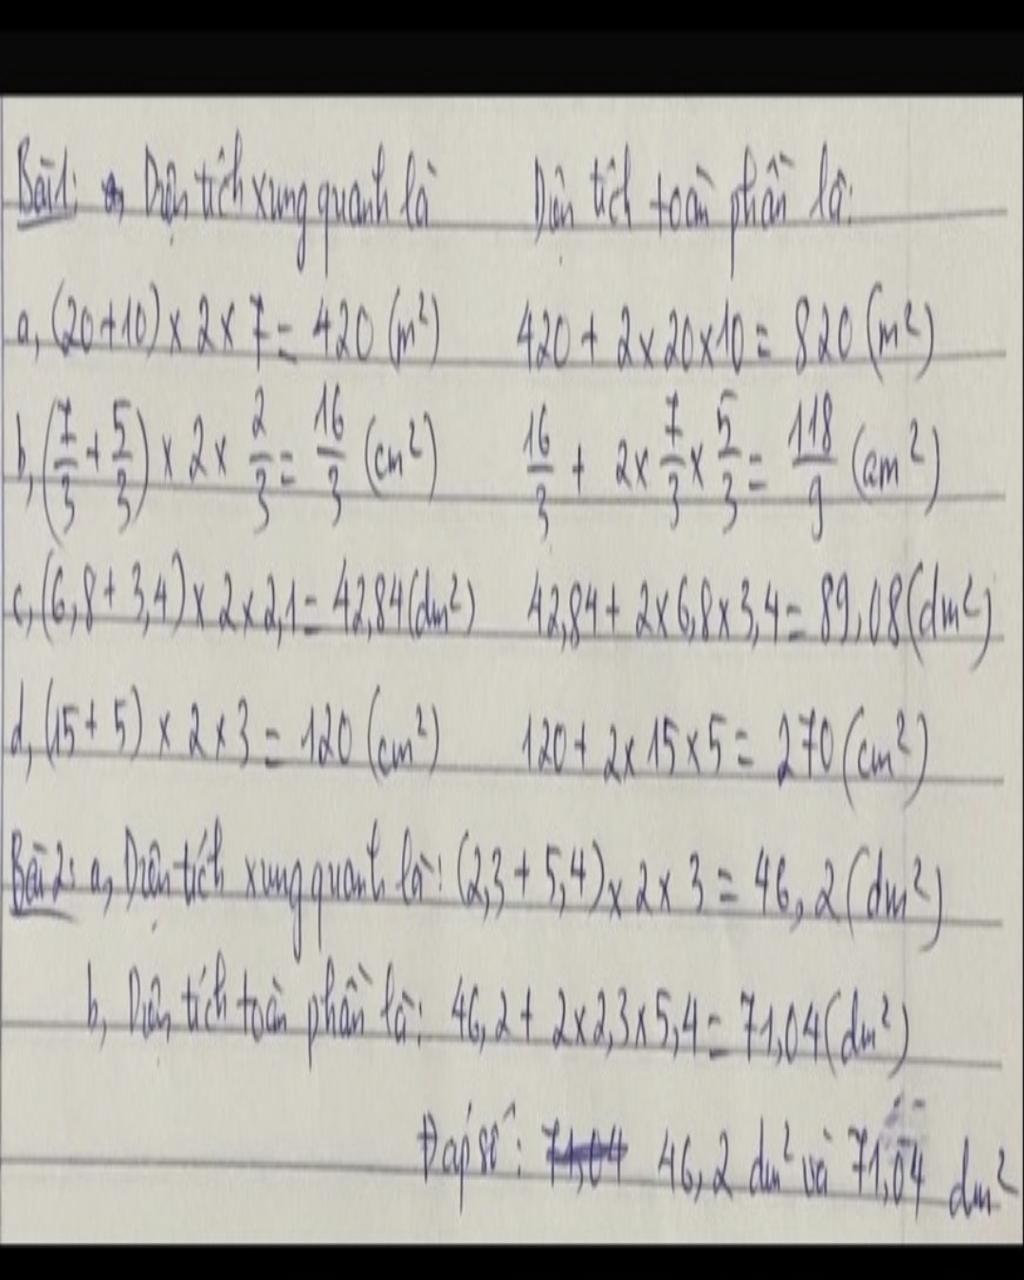 Bài 1: Diện tích xung quanh là Diện tích toàn phần là:
a, (20+10) × 2 × 7 = 420 (m²) 420 + 2 × 20 × 10 = 820 (m²)
b, (7/3 + 5/3) × 2 × 2/3 = 16/3 (cm²) 16/3 + 2 × 7/3 × 5/3 = 118/9 (cm²)
c, (6,8 + 3,4) × 2 × 2,1 = 42,84 (dm²) 42,84 + 2 × 6,8 × 3,4 = 89,08 (dm²)
d, (15 + 5) × 2 × 3 = 120 (cm²) 120 + 2 × 15 × 5 = 270 (cm²)
Bài 2: a, Diện tích xung quanh là: (2,3 + 5,4) × 2 × 3 = 46,2 (dm²)
b, Diện tích toàn phần là: 46,2 + 2 × 2,3 × 5,4 = 71,04 (dm²)
Đáp số: 71,04 46,2 dm² và 71,04 dm²